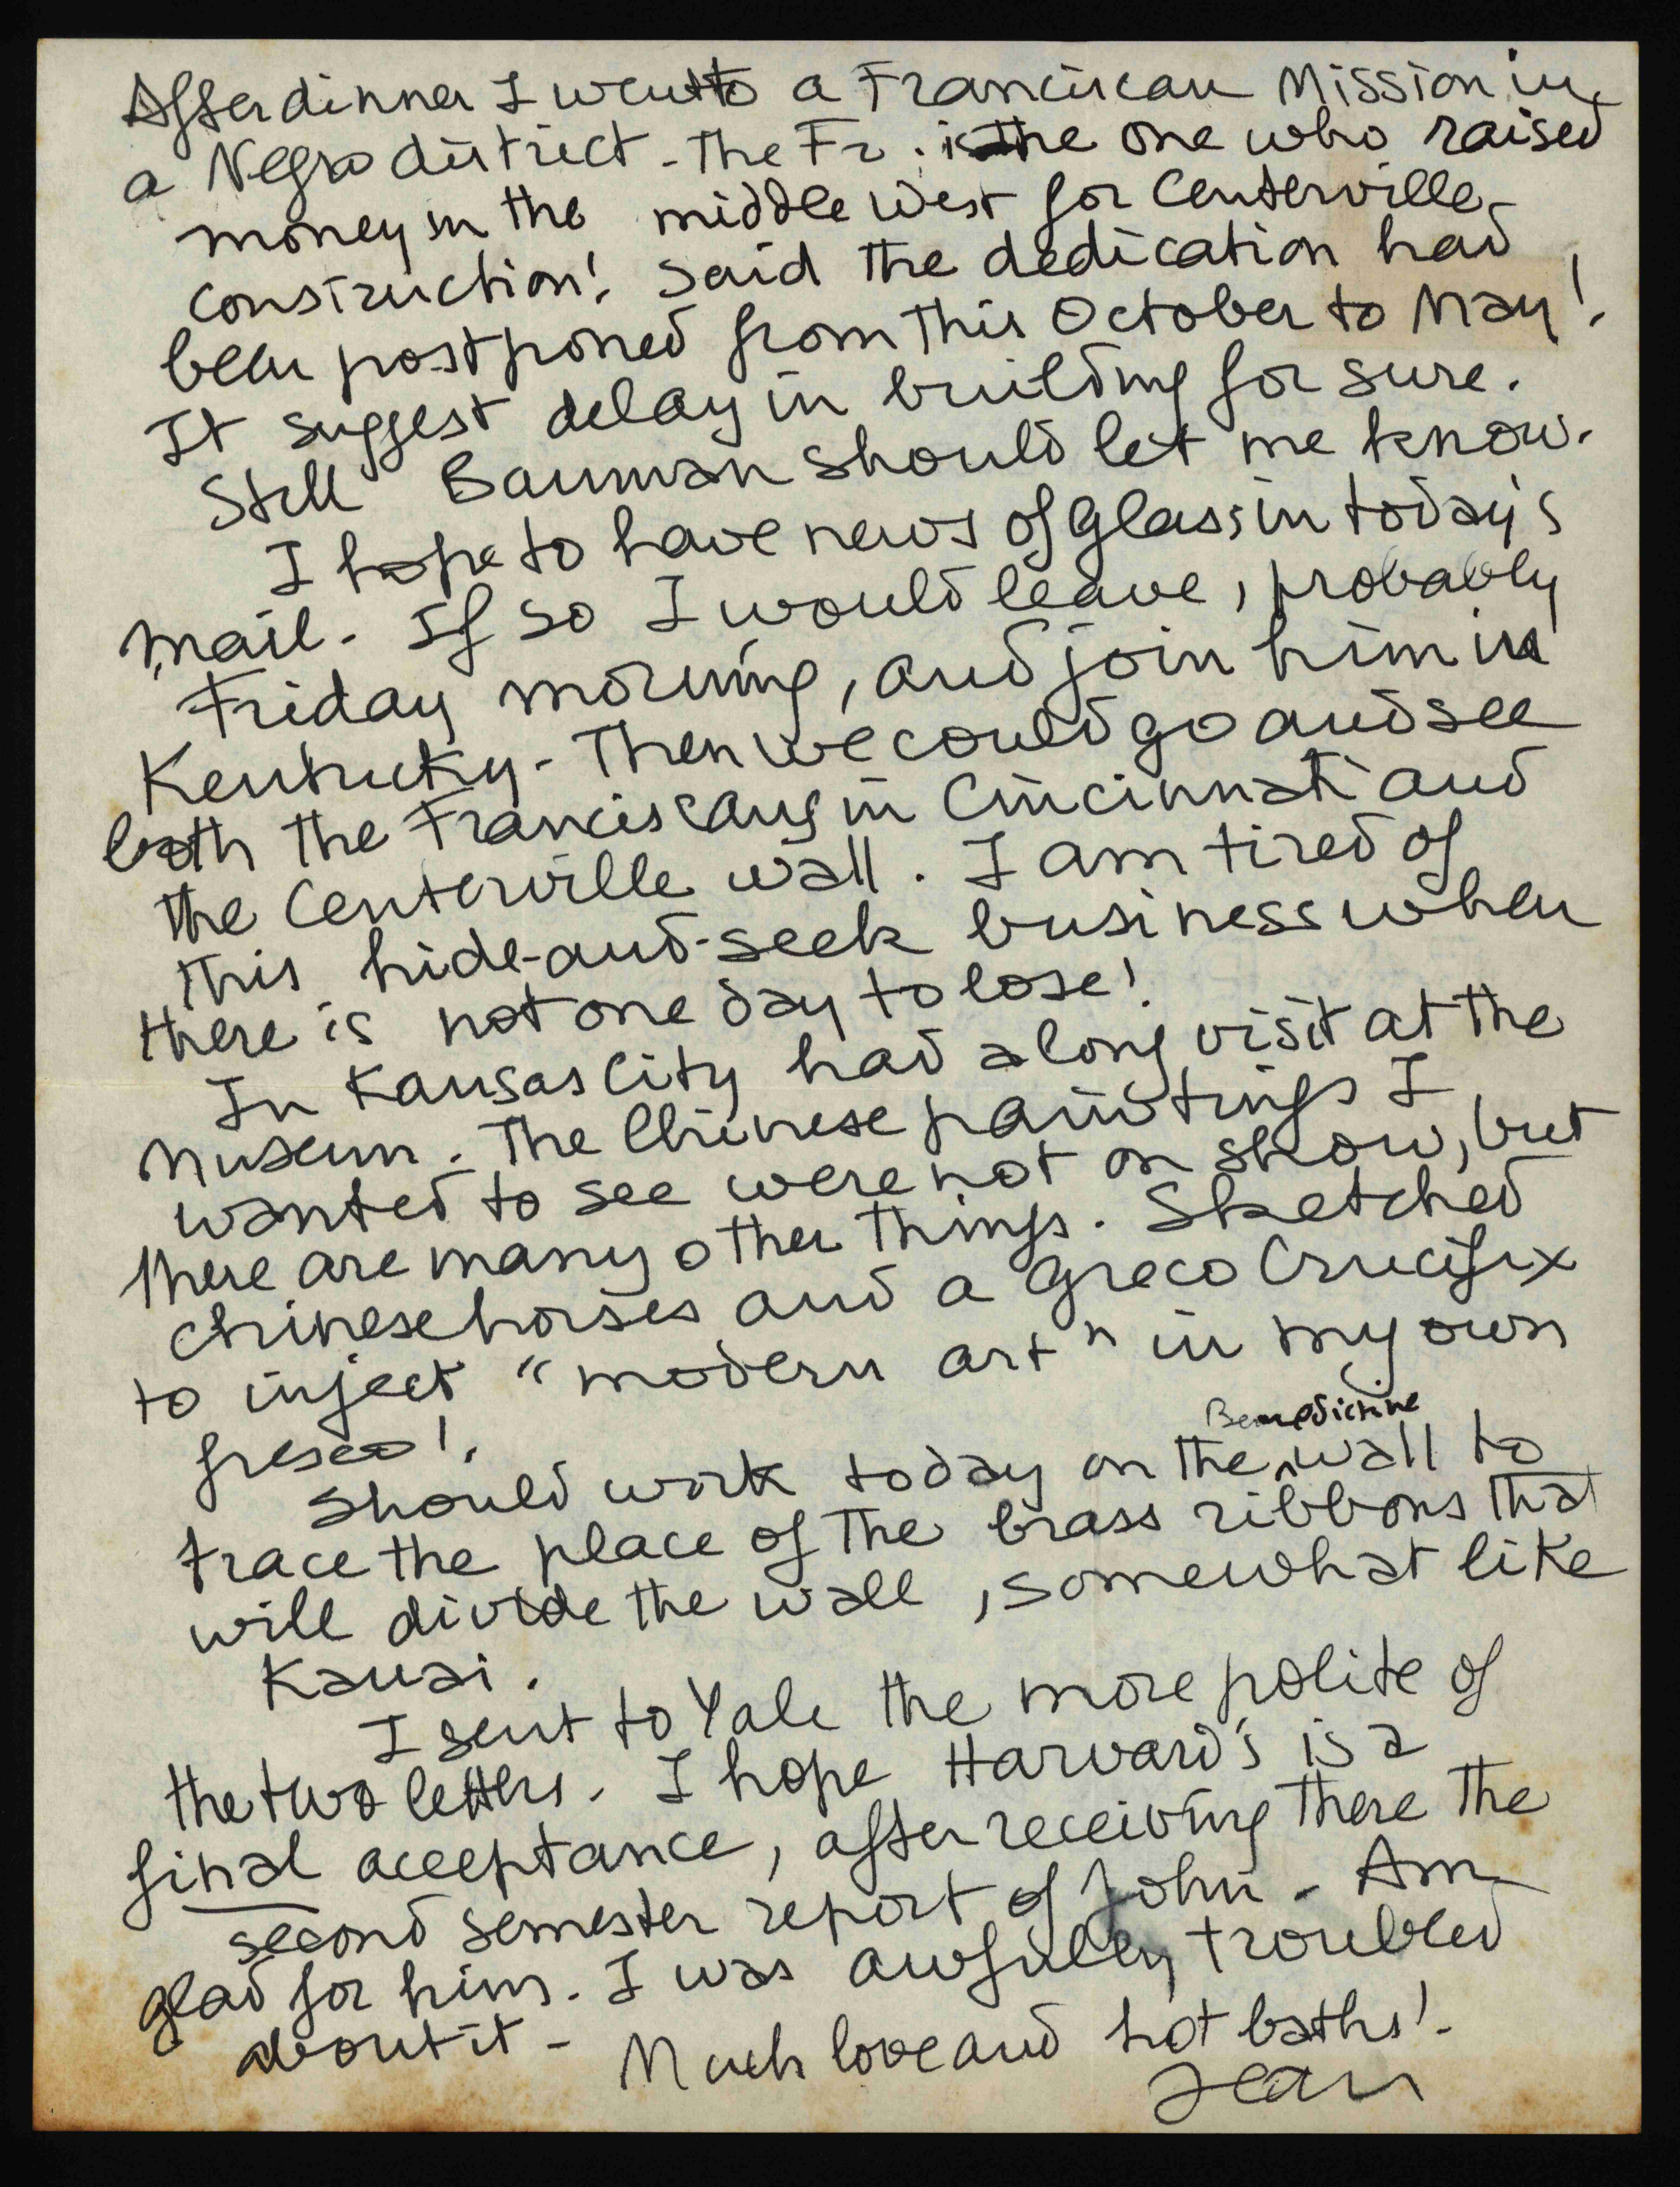 After dinner I went to a Franciscan Mission in
a Negro district - The Fr. is the one who raised
money in the middle West for Centerville
construction! Said the dedication had
been postponed from this October to May!
It suggest delay in building for sure.
Still Bauman should let me know.
I hope to have news of glass in today's
mail. If so I would leave, probably
Friday morning, and join him in
Kentucky - Then we could go and see
both the Franciscans in Cincinnati and
the Centerville wall. I am tired of
this hide-and-seek business when
there is not one day to lose!
In Kansas City had a long visit at the
Museum. The Chinese paintings I
wanted to see were not on show, but
there are many other things. Sketched
chinese horses and a Greco Crucifix
to inject "modern art" in my own
fresco!
Should work today on the Benedictine wall to
trace the place of the brass ribbons that
will divide the wall, somewhat like
Kauai.
I sent to Yale the more polite of
the two letters. I hope Harvard's is a
final acceptance, after receiving there the
second semester report of John - Am
glad for him. I was awfully troubled
about it - Much love and hot baths!
Jean